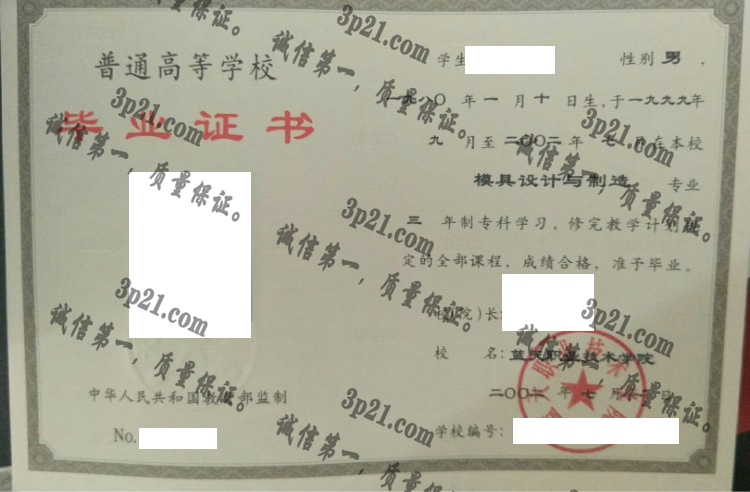 普通高等学校
毕业证书
中华人民共和国教育部监制
No.
学生 性别 男 ，
一九八〇 年 一 月 十 日生，于一九九九年
九 月至 二〇〇二 年 七 月在本校
模具设计与制造 专业
三 年制专科学习，修完教学计划规
定的全部课程，成绩合格，准予毕业。
校(院)长:
校 名: 蓝天职业技术学院
二〇〇二 年 七 月 日
学校编号:
3p21.com
诚信第一，质量保证。
3p21.com
诚信第一，质量保证。
3p21.com
诚信第一，质量保证。
3p21.com
诚信第一，质量保证。
3p21.com
诚信第一，质量保证。
3p21.com
诚信第一，质量保证。
3p21.com
诚信第一，质量保证。